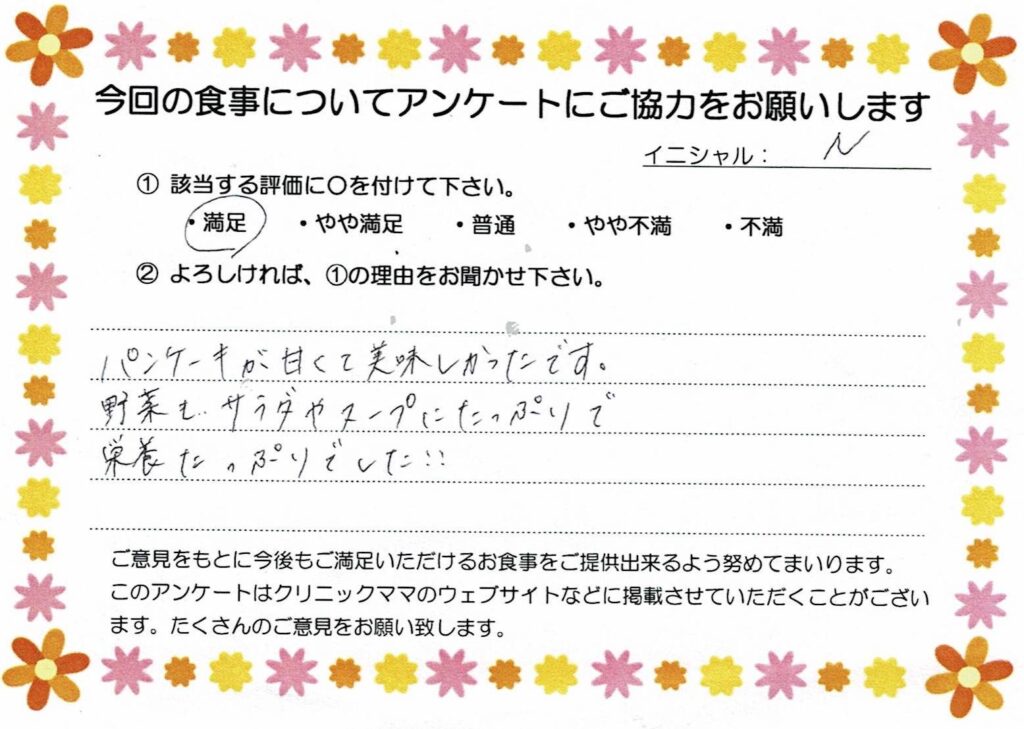 今回の食事についてアンケートにご協力をお願いします
イニシャル： N
① 該当する評価に〇を付けて下さい。
・満足 ・やや満足 ・普通 ・やや不満 ・不満
② よろしければ、①の理由をお聞かせ下さい。
パンケーキが甘くて美味しかったです。
野菜も、サラダやスープにたっぷりで
栄養たっぷりでした!!
ご意見をもとに今後もご満足いただけるお食事をご提供出来るよう努めてまいります。
このアンケートはクリニックママのウェブサイトなどに掲載させていただくことがござい
ます。たくさんのご意見をお願い致します。